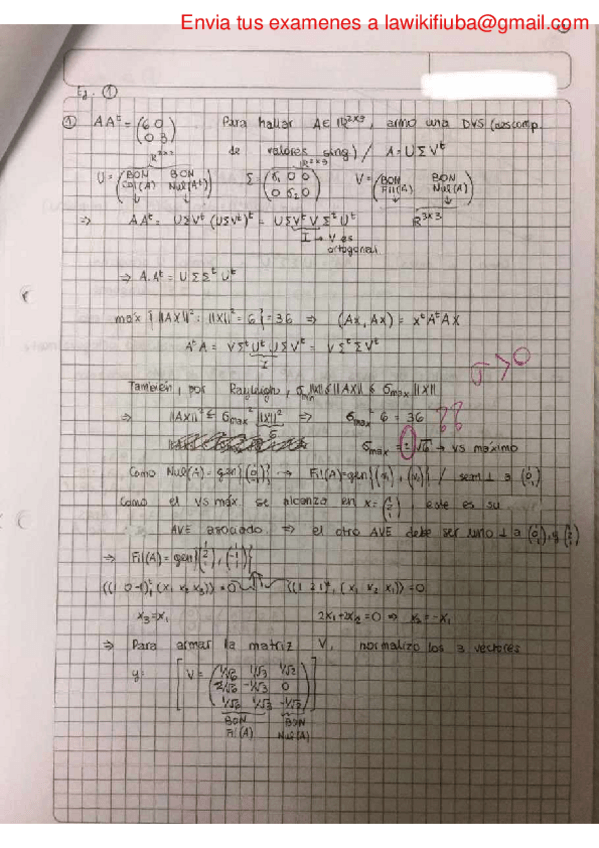 Envia tus examenes a lawikifiuba@gmail.com
Ej. ①
① AAᵗ = (6 0 / 0 3) Para hallar A∈ℝ²ˣ³, armo una DVS (descomp.
de valores sing.) / A = UΣVᵗ
ℝ²ˣ² ℝ²ˣ³
U = (BON Col(A) BON Nul(Aᵗ)) Σ = (σ₁ 0 0 / 0 σ₂ 0) V = (BON Fil(A) BON Nul(A))
ℝ³ˣ³
⇒ AAᵗ = UΣVᵗ (UΣVᵗ)ᵗ = UΣVᵗVΣᵗUᵗ
I → V es
ortogonal
⇒ A.Aᵗ = UΣΣᵗUᵗ
máx{||AX||² : ||X||² = 6} = 36 ⇒ (Ax, Ax) = xᵗAᵗAX
AᵗA = VΣᵗUᵗUΣVᵗ = VΣᵗΣVᵗ
I
σ>0
También, por Rayleigh, σmin||X|| ≤ ||AX|| ≤ σmax||X||
⇒ ||AX||² ≤ σmax² ||X||² ⇒ σmax² 6 = 36 ??
6
σmax = ±√6 → vs máximo
Como Nul(A) = gen{ } → Fil(A) = gen{ } / sean ⊥ a
Como el vs máx se alcanza en x = , este es su
AVE asociado ⇒ el otro AVE debe ser uno ⊥ a
⇒ Fil(A) = gen{ }
((1 0 -1)ᵗ, (x₁ x₂ x₃)) = 0 ((1 2 1)ᵗ, (x₁ x₂ x₁)) = 0
x₃ = x₁ 2x₁ + 2x₂ = 0 ⇒ x₂ = -x₁
⇒ Para armar la matriz V, normalizo los 3 vectores
y: [V = (1/√6 1/√3 1/√2 / 2/√6 -1/√3 0 / 1/√6 1/√3 -1/√2)]
BON BON
Fil(A) Nul(A)